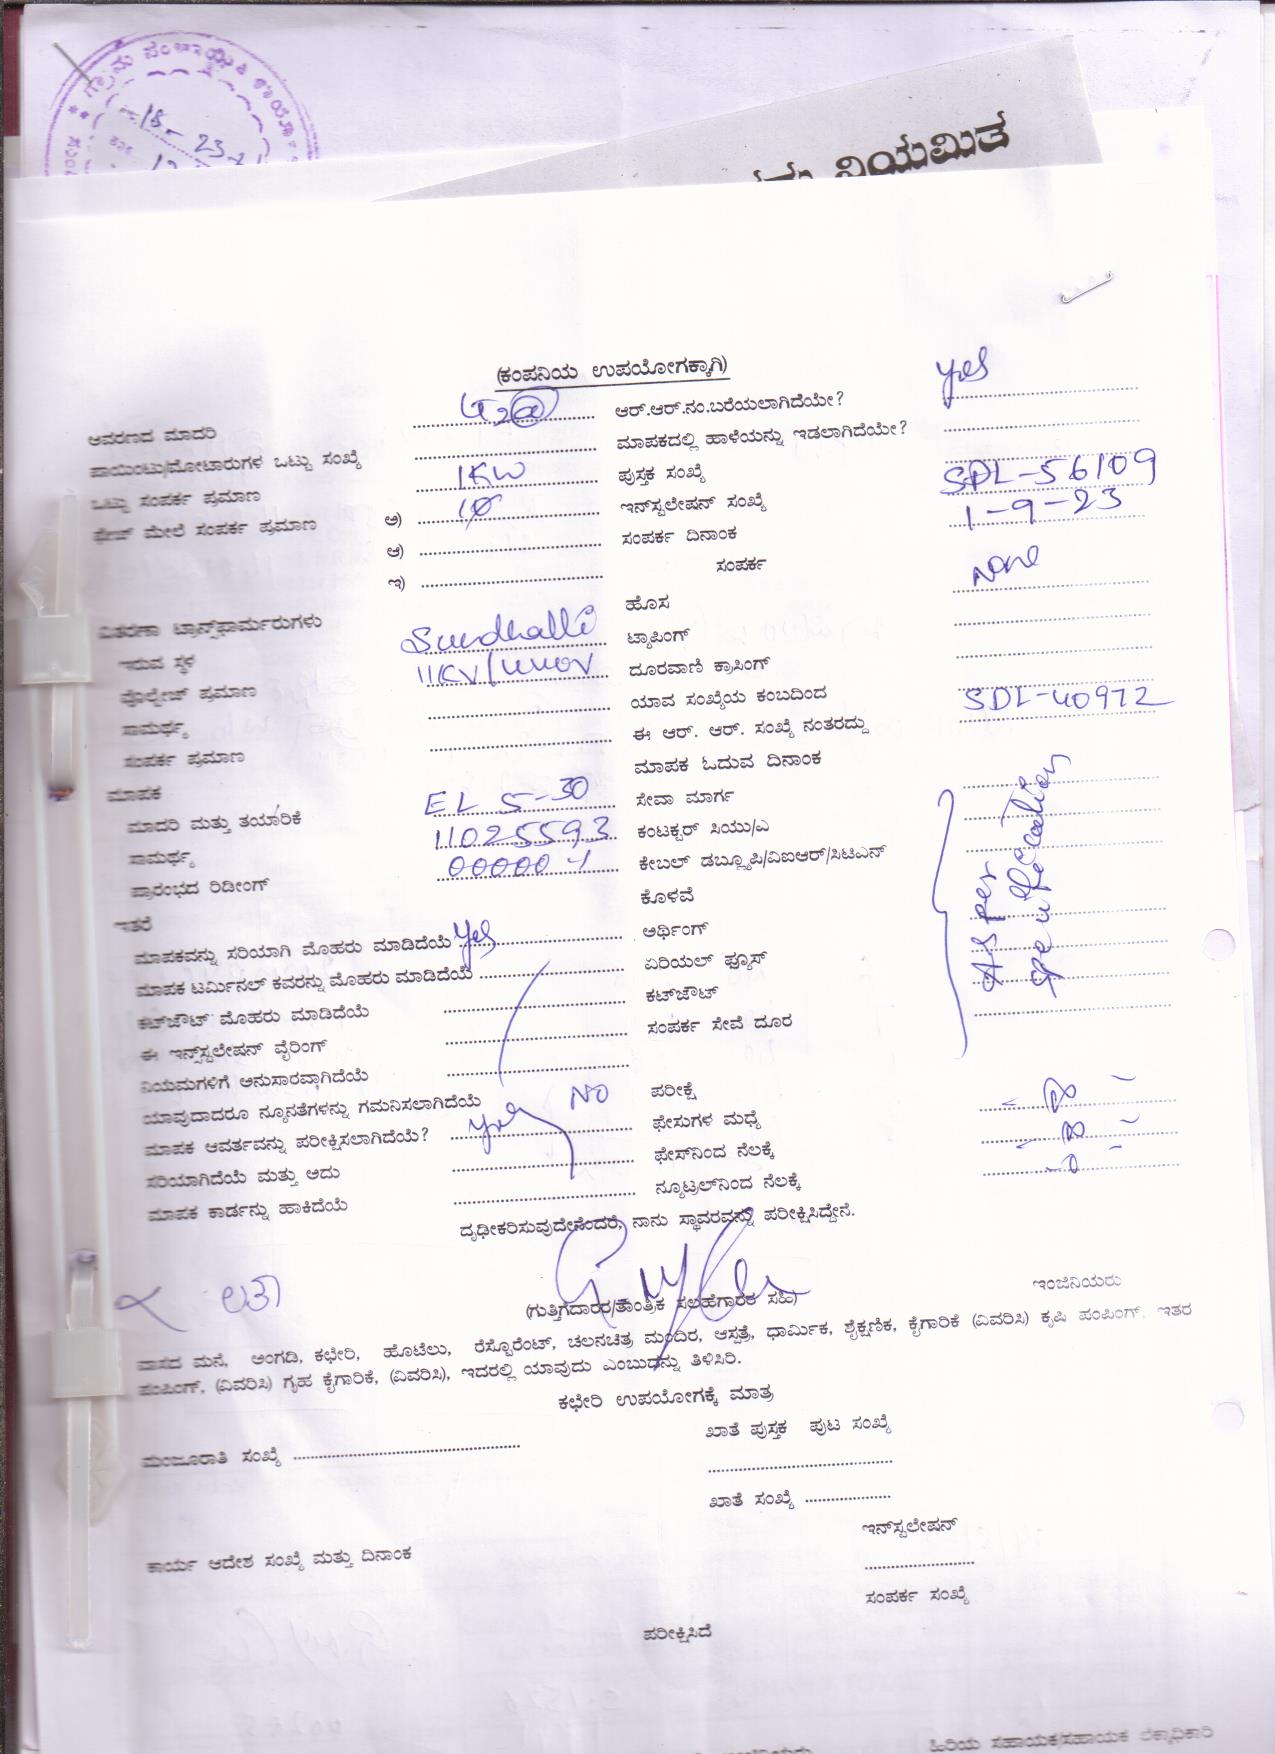 ಗ್ರಾಮ ಪಂಚಾಯಿತಿ ಕಾರ್ಯಾ
18-
23-
ನಿಯಮಿತ
(ಕಂಪನಿಯ ಉಪಯೋಗಕ್ಕಾಗಿ)
ಆವರಣದ ಮಾದರಿ LT2(a) ಆರ್.ಆರ್.ನಂ.ಬರೆಯಲಾಗಿದೆಯೇ? yes
ಪಾಯಿಂಟು/ಮೋಟಾರುಗಳ ಒಟ್ಟು ಸಂಖ್ಯೆ ಮಾಪಕದಲ್ಲಿ ಹಾಳೆಯನ್ನು ಇಡಲಾಗಿದೆಯೇ?
ಒಟ್ಟು ಸಂಪರ್ಕ ಪ್ರಮಾಣ 1KW ಪುಸ್ತಕ ಸಂಖ್ಯೆ
ಫೇಜ್ ಮೇಲೆ ಸಂಪರ್ಕ ಪ್ರಮಾಣ ಅ) 1Ø ಇನ್‌ಸ್ಟಲೇಷನ್ ಸಂಖ್ಯೆ SDL-56109
ಆ) ಸಂಪರ್ಕ ದಿನಾಂಕ 1-9-23
ಇ) ಸಂಪರ್ಕ
ವಿತರಣಾ ಟ್ರಾನ್ಸ್‌ಫಾರ್ಮರುಗಳು ಹೊಸ None
ಇರುವ ಸ್ಥಳ Sundhalli ಟ್ಯಾಪಿಂಗ್
ವೋಲ್ಟೇಜ್ ಪ್ರಮಾಣ 11KV/440V ದೂರವಾಣಿ ಕ್ರಾಸಿಂಗ್
ಸಾಮರ್ಥ್ಯ ಯಾವ ಸಂಖ್ಯೆಯ ಕಂಬದಿಂದ
ಸಂಪರ್ಕ ಪ್ರಮಾಣ ಈ ಆರ್. ಆರ್. ಸಂಖ್ಯೆ ನಂತರದ್ದು SDL-40972
ಮಾಪಕ ಮಾಪಕ ಓದುವ ದಿನಾಂಕ
ಮಾದರಿ ಮತ್ತು ತಯಾರಿಕೆ EL 5-30 ಸೇವಾ ಮಾರ್ಗ
ಸಾಮರ್ಥ್ಯ 11025593 ಕಂಟಕ್ಟರ್ ಸಿಯು/ಎ
ಪ್ರಾರಂಭದ ರಿಡೀಂಗ್ 00000-1 ಕೇಬಲ್ ಡಬ್ಲ್ಯೂಪಿ/ವಿಐಆರ್/ಸಿಟಿಎನ್
ಇತರೆ ಕೊಳವೆ
As per specification
ಮಾಪಕವನ್ನು ಸರಿಯಾಗಿ ಮೊಹರು ಮಾಡಿದೆಯೆ yes ಅರ್ಥಿಂಗ್
ಮಾಪಕ ಟರ್ಮಿನಲ್ ಕವರನ್ನು ಮೊಹರು ಮಾಡಿದೆಯೆ ಏರಿಯಲ್ ಫ್ಯೂಸ್
ಕಟ್‌ಜೌಟ್ ಮೊಹರು ಮಾಡಿದೆಯೆ ಕಟ್‌ಜೌಟ್
ಈ ಇನ್ಸ್‌ಸ್ಟಲೇಷನ್ ವೈರಿಂಗ್ ಸಂಪರ್ಕ ಸೇವೆ ದೂರ
ನಿಯಮಗಳಿಗೆ ಅನುಸಾರವಾಗಿದೆಯೆ
ಯಾವುದಾದರೂ ನ್ಯೂನತೆಗಳನ್ನು ಗಮನಿಸಲಾಗಿದೆಯೆ NO ಪರೀಕ್ಷೆ
ಮಾಪಕ ಆವರ್ತವನ್ನು ಪರೀಕ್ಷಿಸಲಾಗಿದೆಯೆ? yes ಫೇಸುಗಳ ಮಧ್ಯೆ
ಸರಿಯಾಗಿದೆಯೆ ಮತ್ತು ಅದು ಫೇಸ್‌ನಿಂದ ನೆಲಕ್ಕೆ
ಮಾಪಕ ಕಾರ್ಡನ್ನು ಹಾಕಿದೆಯೆ ನ್ಯೂಟ್ರಲ್‌ನಿಂದ ನೆಲಕ್ಕೆ
ದೃಢೀಕರಿಸುವುದೇನೆಂದರೆ, ನಾನು ಸ್ಥಾವರವನ್ನು ಪರೀಕ್ಷಿಸಿದ್ದೇನೆ.
ಲತಾ
(ಗುತ್ತಿಗೆದಾರರ/ತಾಂತ್ರಿಕ ಸಲಹೆಗಾರರ ಸಹಿ) ಇಂಜಿನಿಯರು
ವಾಸದ ಮನೆ, ಅಂಗಡಿ, ಕಛೇರಿ, ಹೊಟೆಲು, ರೆಸ್ಟೊರೆಂಟ್, ಚಲನಚಿತ್ರ ಮಂದಿರ, ಆಸ್ಪತ್ರೆ, ಧಾರ್ಮಿಕ, ಶೈಕ್ಷಣಿಕ, ಕೈಗಾರಿಕೆ (ವಿವರಿಸಿ) ಕೃಷಿ ಪಂಪಿಂಗ್, ಇತರ
ಪಂಪಿಂಗ್, (ವಿವರಿಸಿ) ಗೃಹ ಕೈಗಾರಿಕೆ, (ವಿವರಿಸಿ), ಇದರಲ್ಲಿ ಯಾವುದು ಎಂಬುದನ್ನು ತಿಳಿಸಿರಿ.
ಕಛೇರಿ ಉಪಯೋಗಕ್ಕೆ ಮಾತ್ರ
ಮಂಜೂರಾತಿ ಸಂಖ್ಯೆ ಖಾತೆ ಪುಸ್ತಕ ಪುಟ ಸಂಖ್ಯೆ
ಖಾತೆ ಸಂಖ್ಯೆ
ಇನ್‌ಸ್ಟಲೇಷನ್
ಕಾರ್ಯ ಆದೇಶ ಸಂಖ್ಯೆ ಮತ್ತು ದಿನಾಂಕ
ಸಂಪರ್ಕ ಸಂಖ್ಯೆ
ಪರೀಕ್ಷಿಸಿದೆ
ಹಿರಿಯ ಸಹಾಯಕ/ಸಹಾಯಕ ಲೆಕ್ಕಾಧಿಕಾರಿ